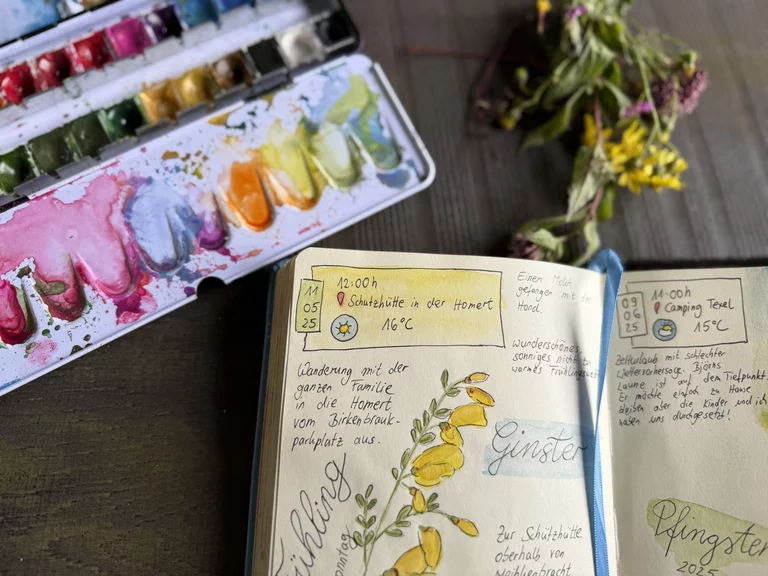 11
05
25
12:00h
Schutzhütte in der Homert
16°C
Einen Molch
gefangen mit der
Hand.
wunderschönes,
sonniges nicht zu
warmes Frühlingswetter
Wanderung mit der
ganzen Familie
in die Homert
vom Birkenbrauk-
parkplatz aus.
Ginster
ühling
onntag
Zur Schutzhütte
oberhalb von
09
06
25
11:00h
Camping Texel
15°C
Zelturlaub mit schlechter
Wettervorhersage. Björns
Laune ist auf dem Tiefpunkt.
Er möchte einfach zu Hause
bleiben aber die Kinder und ich
haben uns durchgesetzt!
Pfingsten
2025